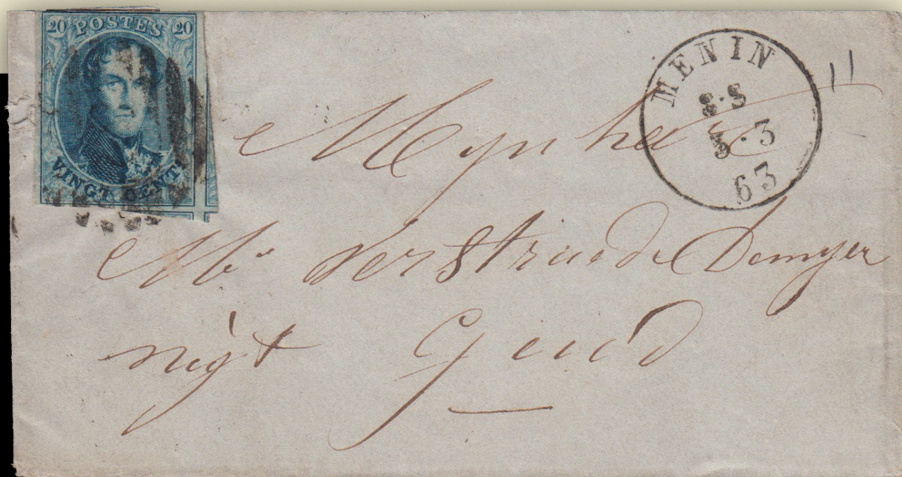 20 POSTES 20
VINGT CENT
MENIN
S·S
5·3
63
Mynheer
Mr Verstraede Demyer
nigt Gend